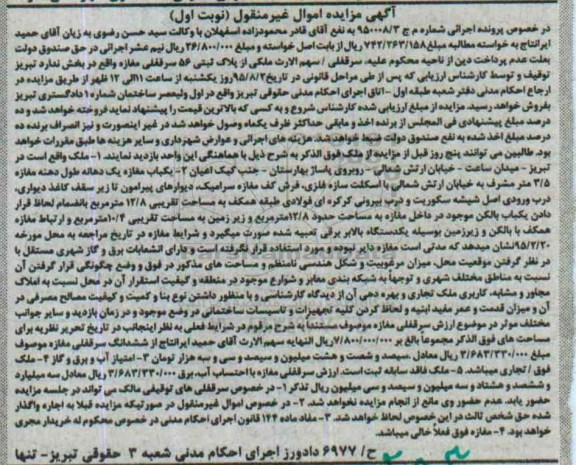 آگهی مزایده اموال غیرمنقول (نوبت اول)
در خصوص پرونده اجرائی شماره م ج ۹۵۰۰۰۸/۳ به نفع آقای قادر محمودزاده اسفهلان با وکالت سید حسن رضوی به زیان آقای حمید
ایرانتاج به خواسته مطالبه مبلغ ۷۴۲/۲۶۳/۱۵۸ ریال از بابت اصل خواسته و مبلغ ۲۶/۸۰۰/۰۰۰ ریال نیم عشر اجرائی در حق صندوق دولت
بعلت عدم پرداخت دین از ناحیه محکوم علیه، سرقفلی / سهم الارث ملکی از پلاک ثبتی ۵۶ سرقفلی مغازه واقع در بخش ندارد تبریز
توقیف و توسط کارشناس ارزیابی که پس از طی مراحل قانونی در تاریخ ۹۵/۸/۲ روز یکشنبه از ساعت ۱۱ الی ۱۲ ظهر از طریق مزایده در
ارجاع احکام مدنی دفتر شعبه طبقه اول - اتاق اجرای احکام مدنی حقوقی تبریز واقع در اول ولیعصر ساختمان شماره ۱ دادگستری تبریز
بفروش خواهد رسید. مزایده از مبلغ ارزیابی شده کارشناس شروع و به کسی که بالاترین قیمت را پیشنهاد نماید فروخته خواهد شد و ده
درصد مبلغ پیشنهادی فی المجلس از برنده اخذ و مابقی حداکثر ظرف یکماه وصول خواهد شد در غیر اینصورت و نیز انصراف برنده ده
درصد مبلغ اخذ شده به نفع صندوق دولت ضبط خواهد شد. هزینه های اجرائی و عوارض شهرداری و سایر هزینه ها طبق مقررات خواهد
بود. طالبین می توانند پنج روز قبل از مزایده از ملک فوق الذکر به شرح ذیل با هماهنگی این واحد بازدید نمایند. ۱- ملک واقع است در
تبریز - میدان ساعت - خیابان ارتش شمالی - روبروی پاساژ بهارستان - جنب کیک اعیان ۲- یکباب مغازه یک دهانه طول دهنه مغازه
۳/۵ متر مشرف به خیابان ارتش شمالی با اسکلت سازه فلزی، فرش کف مغازه سرامیک، دیوارهای پیرامون تا زیر سقف کاغذ دیواری،
درب ورودی اصل شیشه سکوریت و درب بیرونی کرکره ای فولادی طبقه همکف به مساحت تقریبی ۱۲/۸ مترمربع بانضمام لحاظ قرار
دادن یکباب بالکن موجود در داخل مغازه به مساحت حدود ۱۲/۸ مترمربع و زیر زمین به مساحت تقریبی ۱۰/۴ مترمربع و ارتباط مغازه
همکف با بالکن و زیرزمین بوسیله یکدستگاه بالابر برقی تعبیه شده صورت میگیرد و شرایط مغازه در تاریخ مراجعه به محل مورخه
۹۵/۲/۲۰ نشان میدهد که مدتی است مغازه دایر نبوده و مورد استفاده قرار نگرفته است و دارای انشعابات برق و گاز شهری مستقل با
در نظر گرفتن موقعیت محل، میزان مرغوبیت و شکل هندسی نامنظم و مساحت های مذکور در فوق و وضع چگونگی قرار گرفتن آن
نسبت به مناطق مختلف شهری و توجهاً به شبکه بندی معابر و شوارع موجود در منطقه و کیفیت استقرار آن در محل نسبت به املاک
مجاور و مشابه، کاربری ملک تجاری و بهره دهی آن از دیدگاه کارشناسی و با منظور داشتن نوع بنا و کمیت و کیفیت مصالح مصرفی در
آن و میزان قدمت و عمر مفید ابنیه و لحاظ کردن کلیه تجهیزات و تاسیسات ساختمانی در وضع موجود و در زمان بازدید و سایر جوانب
مختلف موثر در موضوع ارزش سرقفلی مغازه موصوف مستنداً به شرح مرقوم در شرایط فعلی به نظر اینجانب در تاریخ تحریر نظریه برای
مساحت های فوق الذکر مجموعاً بالغ بر ۷/۸۰۰/۰۰۰/۰۰۰ ریال النهایه سهم الارث آقای حمید ایرانتاج از ششدانگ سرقفلی مغازه موصوف
مبلغ ۳/۶۸۳/۳۳۰/۰۰۰ ریال معادل سیصد و شصت و هشت میلیون و سیصد و سی و سه هزار تومان ۳- امتیاز آب و برق و گاز ۴- ملک
فوق / تجاری میباشد. ۵- ملک فاقد سابقه ثبت است. ارزش سرقفلی مغازه با احتساب آب، برق ۳/۶۸۳/۳۳۰/۰۰۰ ریال معادل سه میلیارد
و ششصد و هشتاد و سه میلیون و سیصد و سی میلیون ریال تذکر ۱- در خصوص سرقفلی های توقیفی مالک می تواند در جلسه مزایده
حضور یابد. عدم حضور وی مانع از انجام مزایده نخواهد شد. ۲- در خصوص اموال غیرمنقول در صورتیکه مزایده قبلا به اجاره واگذار
شده حق شخص ثالث در این خصوص لحاظ خواهد شد. ۳- مفاد ماده ۱۴۴ قانون اجرای احکام مدنی در خصوص محکوم له خریدار مجری
خواهد بود. ۴- مغازه فوق فعلا خالی میباشد.
ح/ ۶۹۷۷ دادورز اجرای احکام مدنی شعبه ۳ حقوقی تبریز- تنها